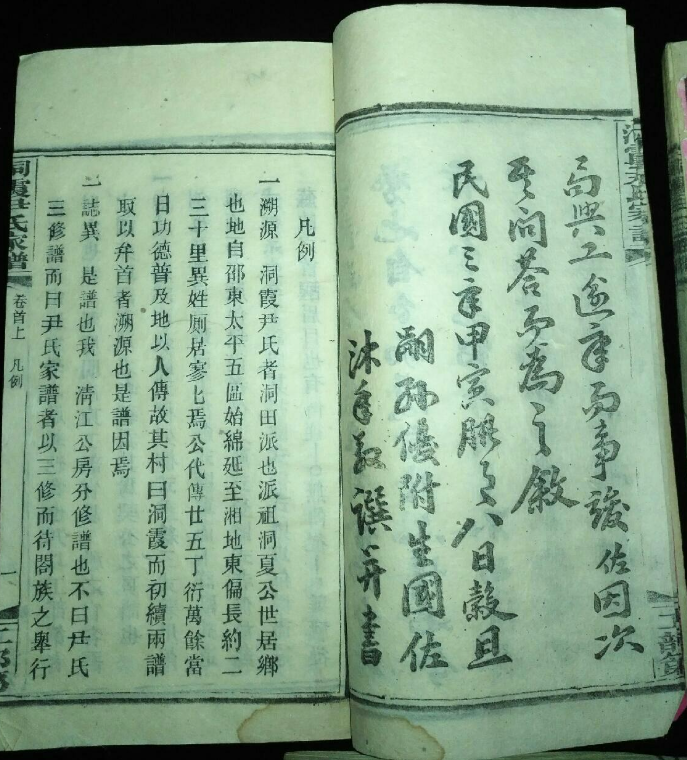 而興工迨年而事竣佐因次
其問答而為之敘
民國三年甲寅臘月八日穀旦
嗣孫優附生國佐
沐手敬譔并書
凡例
一溯源 洞霞尹氏者洞田派也派祖洞夏公世居鄉
也地自邵東太平五區始綿延至湘地東偏長約二
三十里異姓廁居寥七焉公代傳廿五丁衍萬餘當
日功德普及地以人傳故其村曰洞霞而初續兩譜
取以弁首者溯源也是譜因焉
一誌異 是譜也我 清江公房分修譜也不曰尹氏
三修譜而曰尹氏家譜者以三修而待闔族之舉行
洞霞尹氏家譜
卷首上 凡例
一